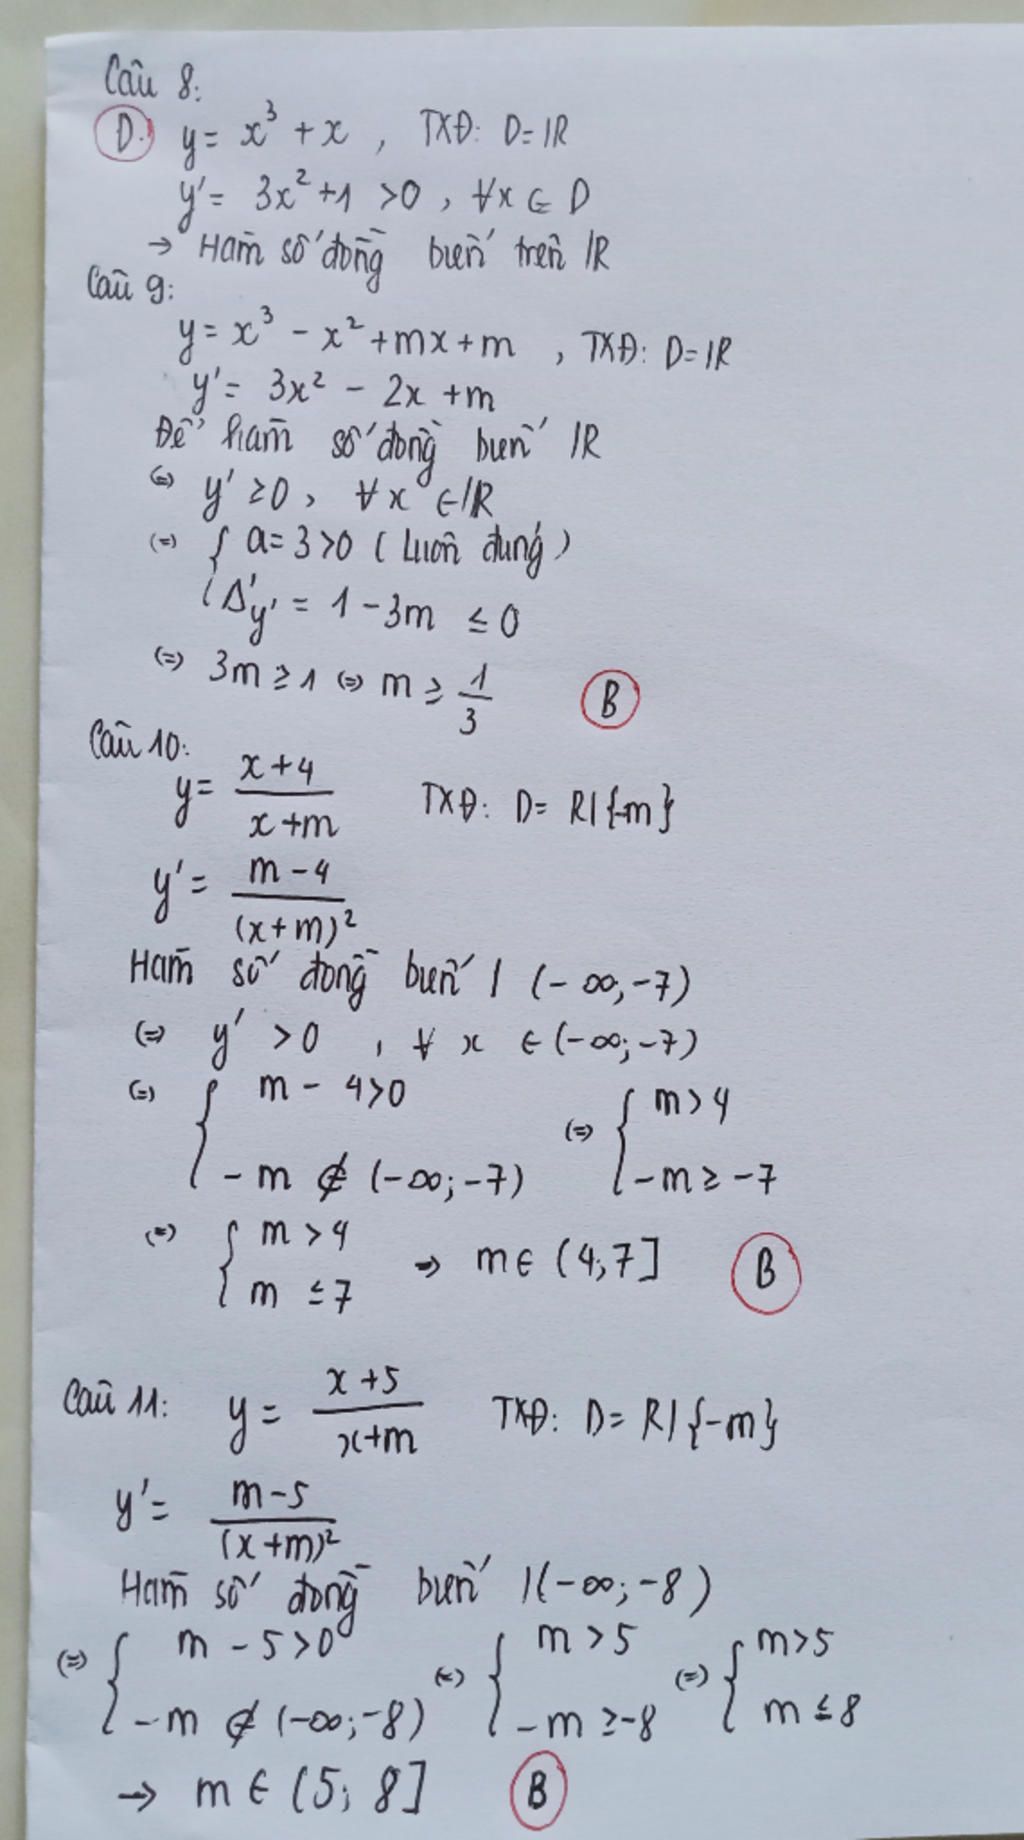 Câu 8:
D. y = x³ + x , TXĐ: D = ℝ
y' = 3x² + 1 > 0 , ∀x ∈ D
→ Hàm số đồng biến trên ℝ
Câu 9:
y = x³ - x² + mx + m , TXĐ: D = ℝ
y' = 3x² - 2x + m
Để hàm số đồng biến /ℝ
(=) y' ≥ 0 , ∀x ∈ ℝ
(=) { a = 3 > 0 (Luôn đúng)
Δ'y' = 1 - 3m ≤ 0
(=) 3m ≥ 1 (=) m ≥ 1/3 B
Câu 10:
y = (x+4)/(x+m) TXĐ: D = R\{-m}
y' = (m-4)/(x+m)²
Hàm số đồng biến / (-∞, -7)
(=) y' > 0 , ∀ x ∈ (-∞; -7)
(=) { m - 4 > 0 (=) { m > 4
-m ∉ (-∞; -7) -m ≥ -7
(=) { m > 4 → m ∈ (4; 7] B
m ≤ 7
Câu 11: y = (x+5)/(x+m) TXĐ: D = R\{-m}
y' = (m-5)/(x+m)²
Hàm số đồng biến /(-∞; -8)
(=) { m - 5 > 0 (=) { m > 5 (=) { m > 5
-m ∉ (-∞; -8) -m ≥ -8 m ≤ 8
→ m ∈ (5; 8] B